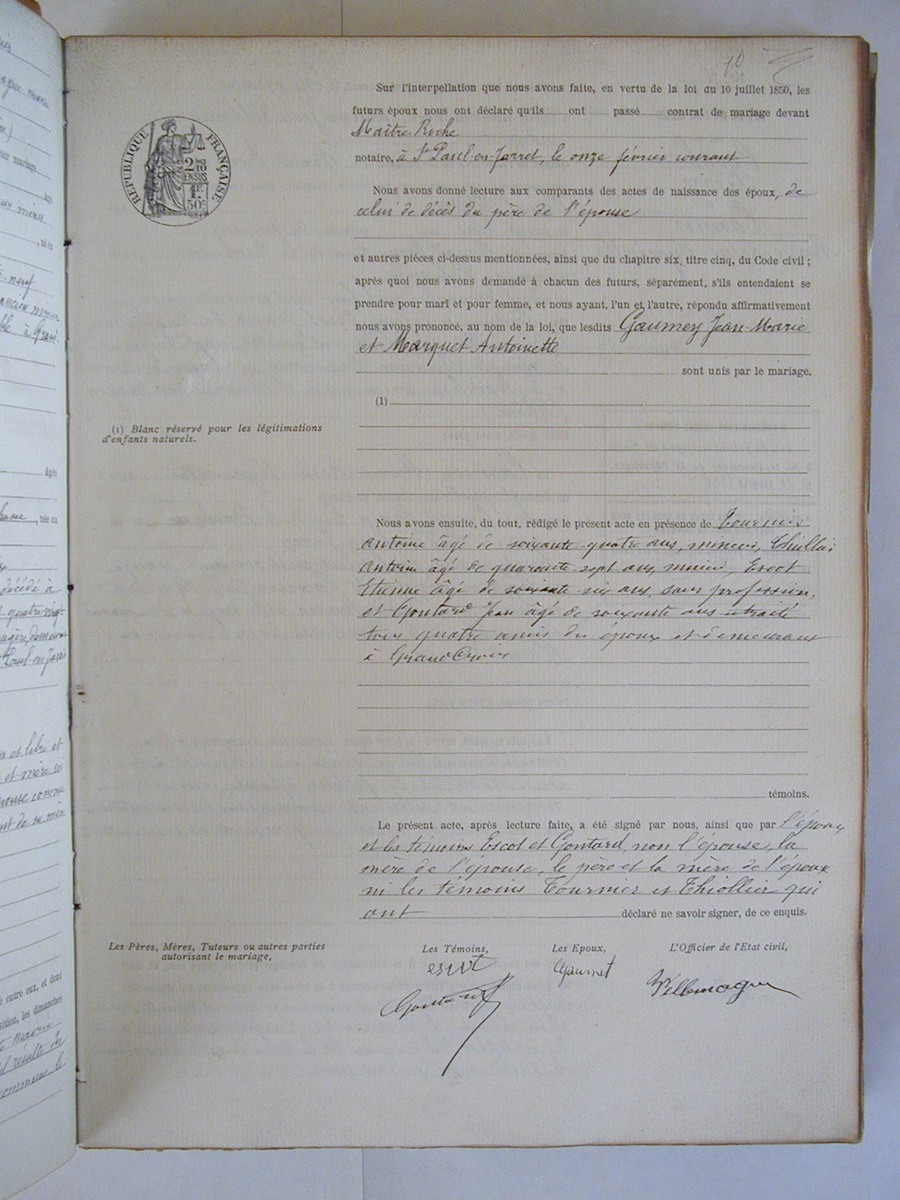 10
Sur l'interpellation que nous avons faite, en vertu de la loi du 10 juillet 1850, les
futurs époux nous ont déclaré qu'ils ont passé contrat de mariage devant
Maître Roche
notaire, à St Paul-en-Jarret, le onze février courant
RÉPUBLIQUE FRANÇAISE
2/10 EN SUS
1F 50c
Nous avons donné lecture aux comparants des actes de naissance des époux, de
celui de décès du père de l'épouse
et autres pièces ci-dessus mentionnées, ainsi que du chapitre six, titre cinq, du Code civil ;
après quoi nous avons demandé à chacun des futurs, séparément, s'ils entendaient se
prendre pour mari et pour femme, et nous ayant, l'un et l'autre, répondu affirmativement
nous avons prononcé, au nom de la loi, que lesdits Gaumet Jean Marie
et Marquet Antoinette
sont unis par le mariage.
(1)
(1) Blanc réservé pour les légitimations
d'enfants naturels.
Nous avons ensuite, du tout, rédigé le présent acte en présence de Tournier
Antoine âgé de soixante quatre ans, mineur, Thiollier
Antoine âgé de quarante-sept ans, mineur, Escot
Etienne âgé de soixante six ans, sans profession,
et Goutard Jean âgé de soixante ans retraité
tous quatre amis des époux et demeurant
à Grand'Croix
témoins.
Le présent acte, après lecture faite, a été signé par nous, ainsi que par l'époux
et les témoins Escot et Goutard, non l'épouse, la
mère de l'épouse, le père et la mère de l'époux
ni les témoins Tournier et Thiollier qui
ont déclaré ne savoir signer, de ce enquis.
Les Pères, Mères, Tuteurs ou autres parties
autorisant le mariage,
Les Témoins,
Les Epoux,
L'Officier de l'Etat civil,
escot
Gaumet
Goutard
Villemagne